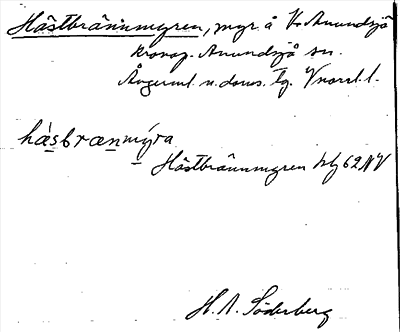 Hästbrännmyren, myr å V. Anundsjö
kronop. Anundsjö sn.
Ångerml. n. doms. tg. Vnorrl. l.
hàsbrænmýra
Hästbrännmyren hly 62 NV
H. A. Söderberg